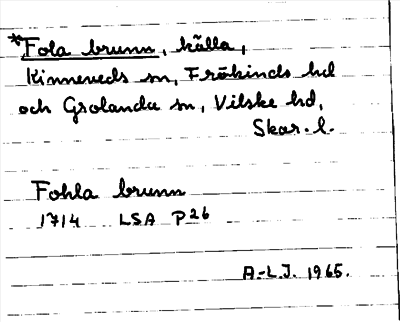 *Fola brunn, källa,
Kinneveds sn, Frökinds hd
och Grolanda sn, Vilske hd,
Skar. l.
Fohla brunn
1714 LSA P26
A-L.J. 1965.